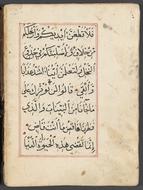 فلاقطعن ايديكم وارجلكم
من خلاف ولاصلبنكم في جذوع
النخل ولتعلمن اينا اشد عذابا
وابقى قالوا لن نؤثرك على
ما جاءنا من البينات والذي
فطرنا فاقض ما انت قاض
انما تقضي هذه الحيوة الدنيا